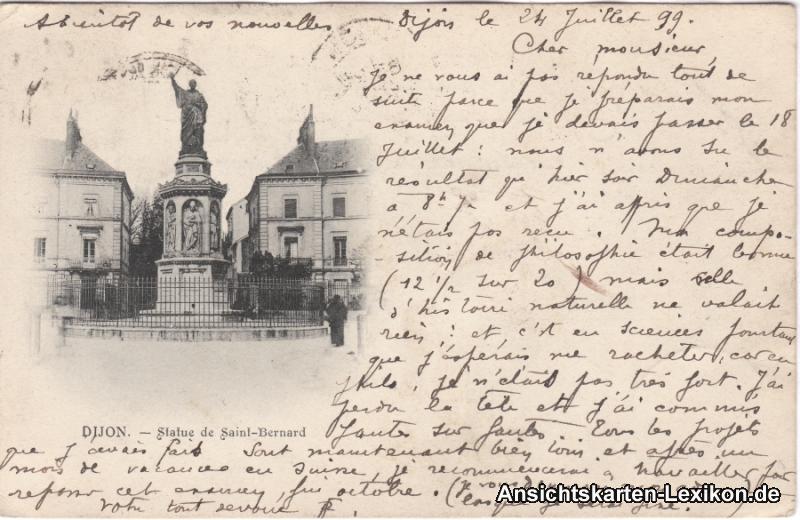 A bientôt de vos nouvelles
Dijon le 24 Juillet 99.
Cher monsieur,
Je ne vous ai pas répondu tout de
suite parce que je préparais mon
examen que je devais passer le 18
Juillet : nous n'avons su le
résultat qu'hier soir Dimanche
à 8h ½ et j'ai appris que je
n'étais pas reçu. Ma compo-
sition de philosophie était bonne
(12 1/2 sur 20) mais celle
d'histoire naturelle ne valait
rien ; et, c'est en sciences pourtant
que j'espérais me racheter, car en
philo, je n'étais pas très fort. J'ai
perdu la tête et j'ai commis
fautes sur fautes. Tous les projets
que j'avais faits sont maintenant bien loin et après un
mois de vacances en Suisse, je recommencerai à travailler pour
repasser cet examen, fin octobre. (Je vous
Votre tout dévoué
DIJON. — Statue de Saint-Bernard
Ansichtskarten-Lexikon.de